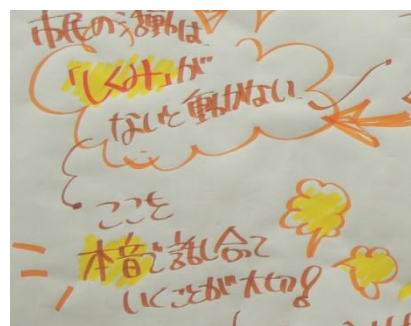 市民の活動は
「しくみ」が
ないと動かない
ここを
本音で話し合って
いくことが大切!